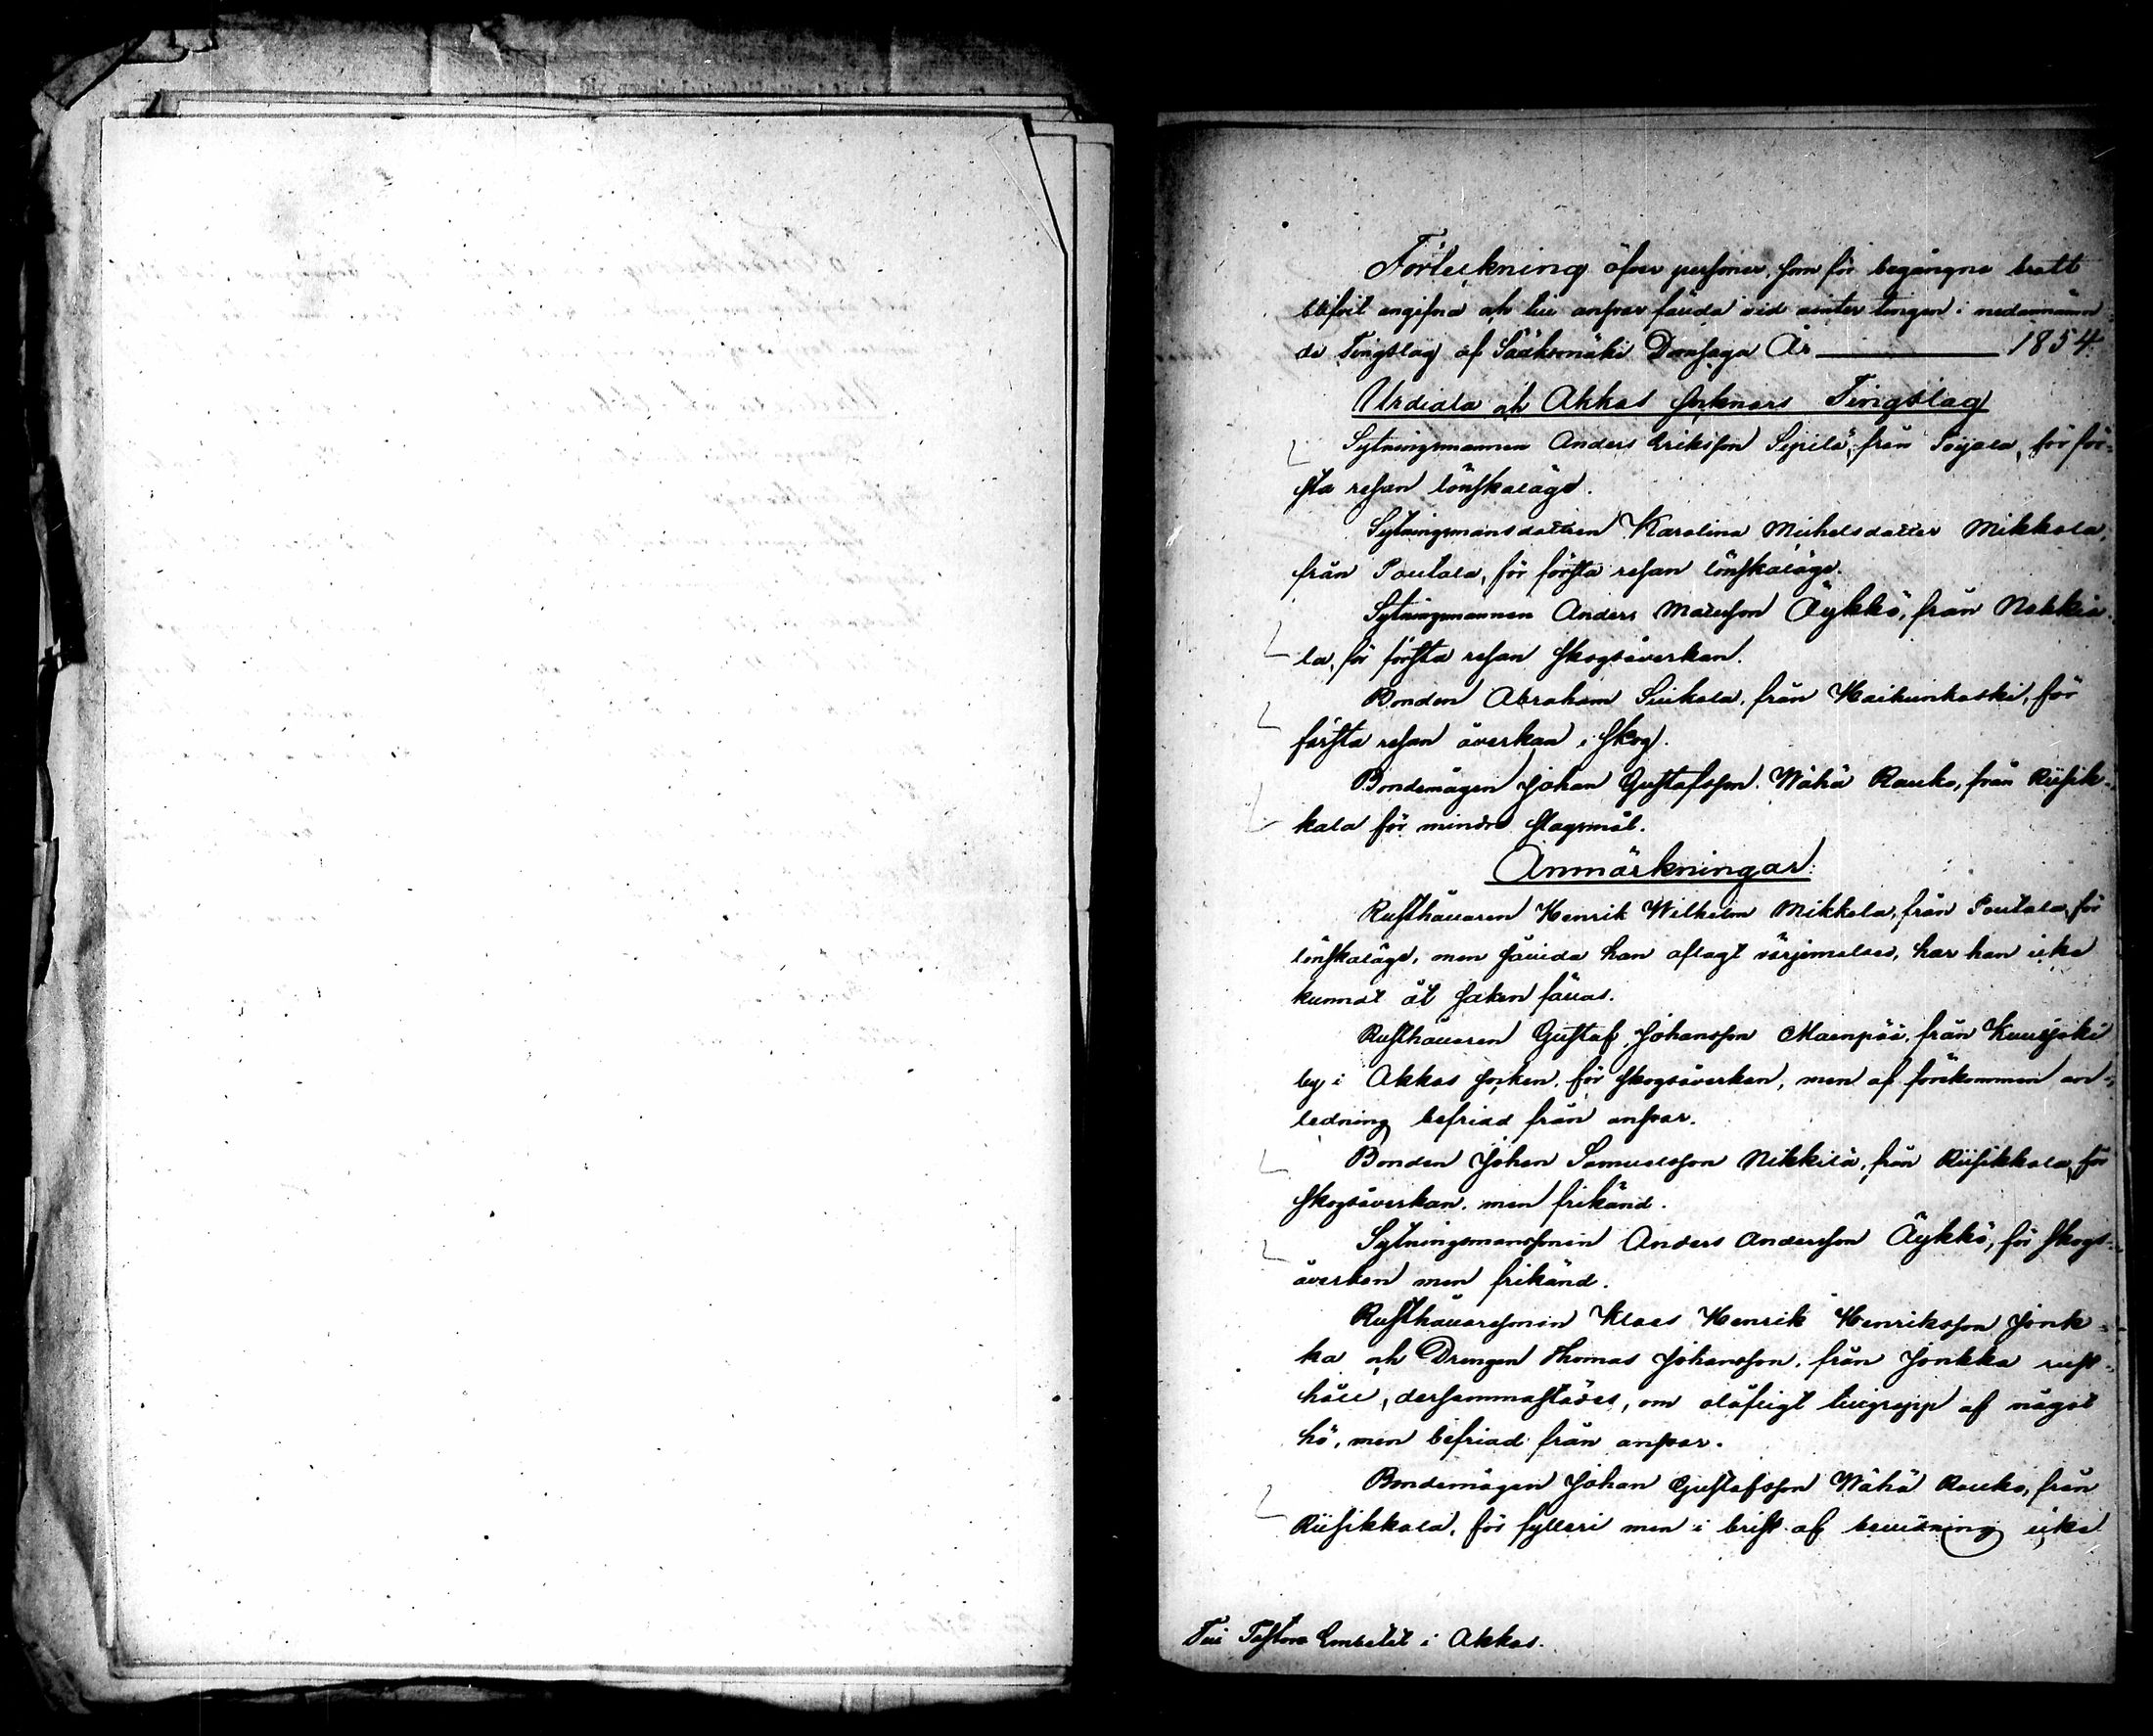 Förteckning öfver personer, som för begångne brott
blifvit angifna och till ansvar fälda vid vinter tingen i nedannämn
de Tingslag af Sääksmäki Domsaga År 1854.
Urdiala och Akkas Socknars Tingslag
Sytningsmannen Anders Eriksson Sipilä, från Toijala, för för-
sta resan lönskaläge.
Sytningsmansdottren Karolina Michelsdotter Mikkola,
från Pentala, för första resan lönskaläge.
Sytningsmannen Anders Matsson Äykkö, från Nokkia
la, för första resan skogsåverkan.
Bonden Abraham Siukola, från Kaikunkoski, för
första resan åverkan i skog.
Bondemågen Johan Gustafsson Wähä Rauko, från Riisik-
kala för mindre slagsmål.
Anmärkningar.
Rusthållaren Henrik Wilhelm Mikkola, från Pentala, för
lönskaläge, men sådan han aflagt värjemålsed, har han icke
kunnat åt saken fällas.
Rusthållaren Gustaf Johansson Maenpää, från Kurisjoki
by i Akkas socken, för skogsåverkan, men af förekommen an-
ledning befriad från ansvar.
Bonden Johan Samuelsson Nikkilä, från Riisikkala, för
skogsåverkan, men frikänd.
Sytningsmanssonen Anders Andersson Äykkö, för skogs-
åverkan men frikänd.
Rusthållaresonen Klaes Henrik Henriksson Jonk-
ka och Drengen Thomas Johansson, från Jonkka rust-
håll, dersammastädes, om olofligt tillgrepp af något
hö, men befriad från ansvar.
Bondemågen Johan Gustafsson Wähä Rauko, från
Riisikkala, för fylleri men i brist af bevisning icke
Till Pastors Embetet i Akkas.